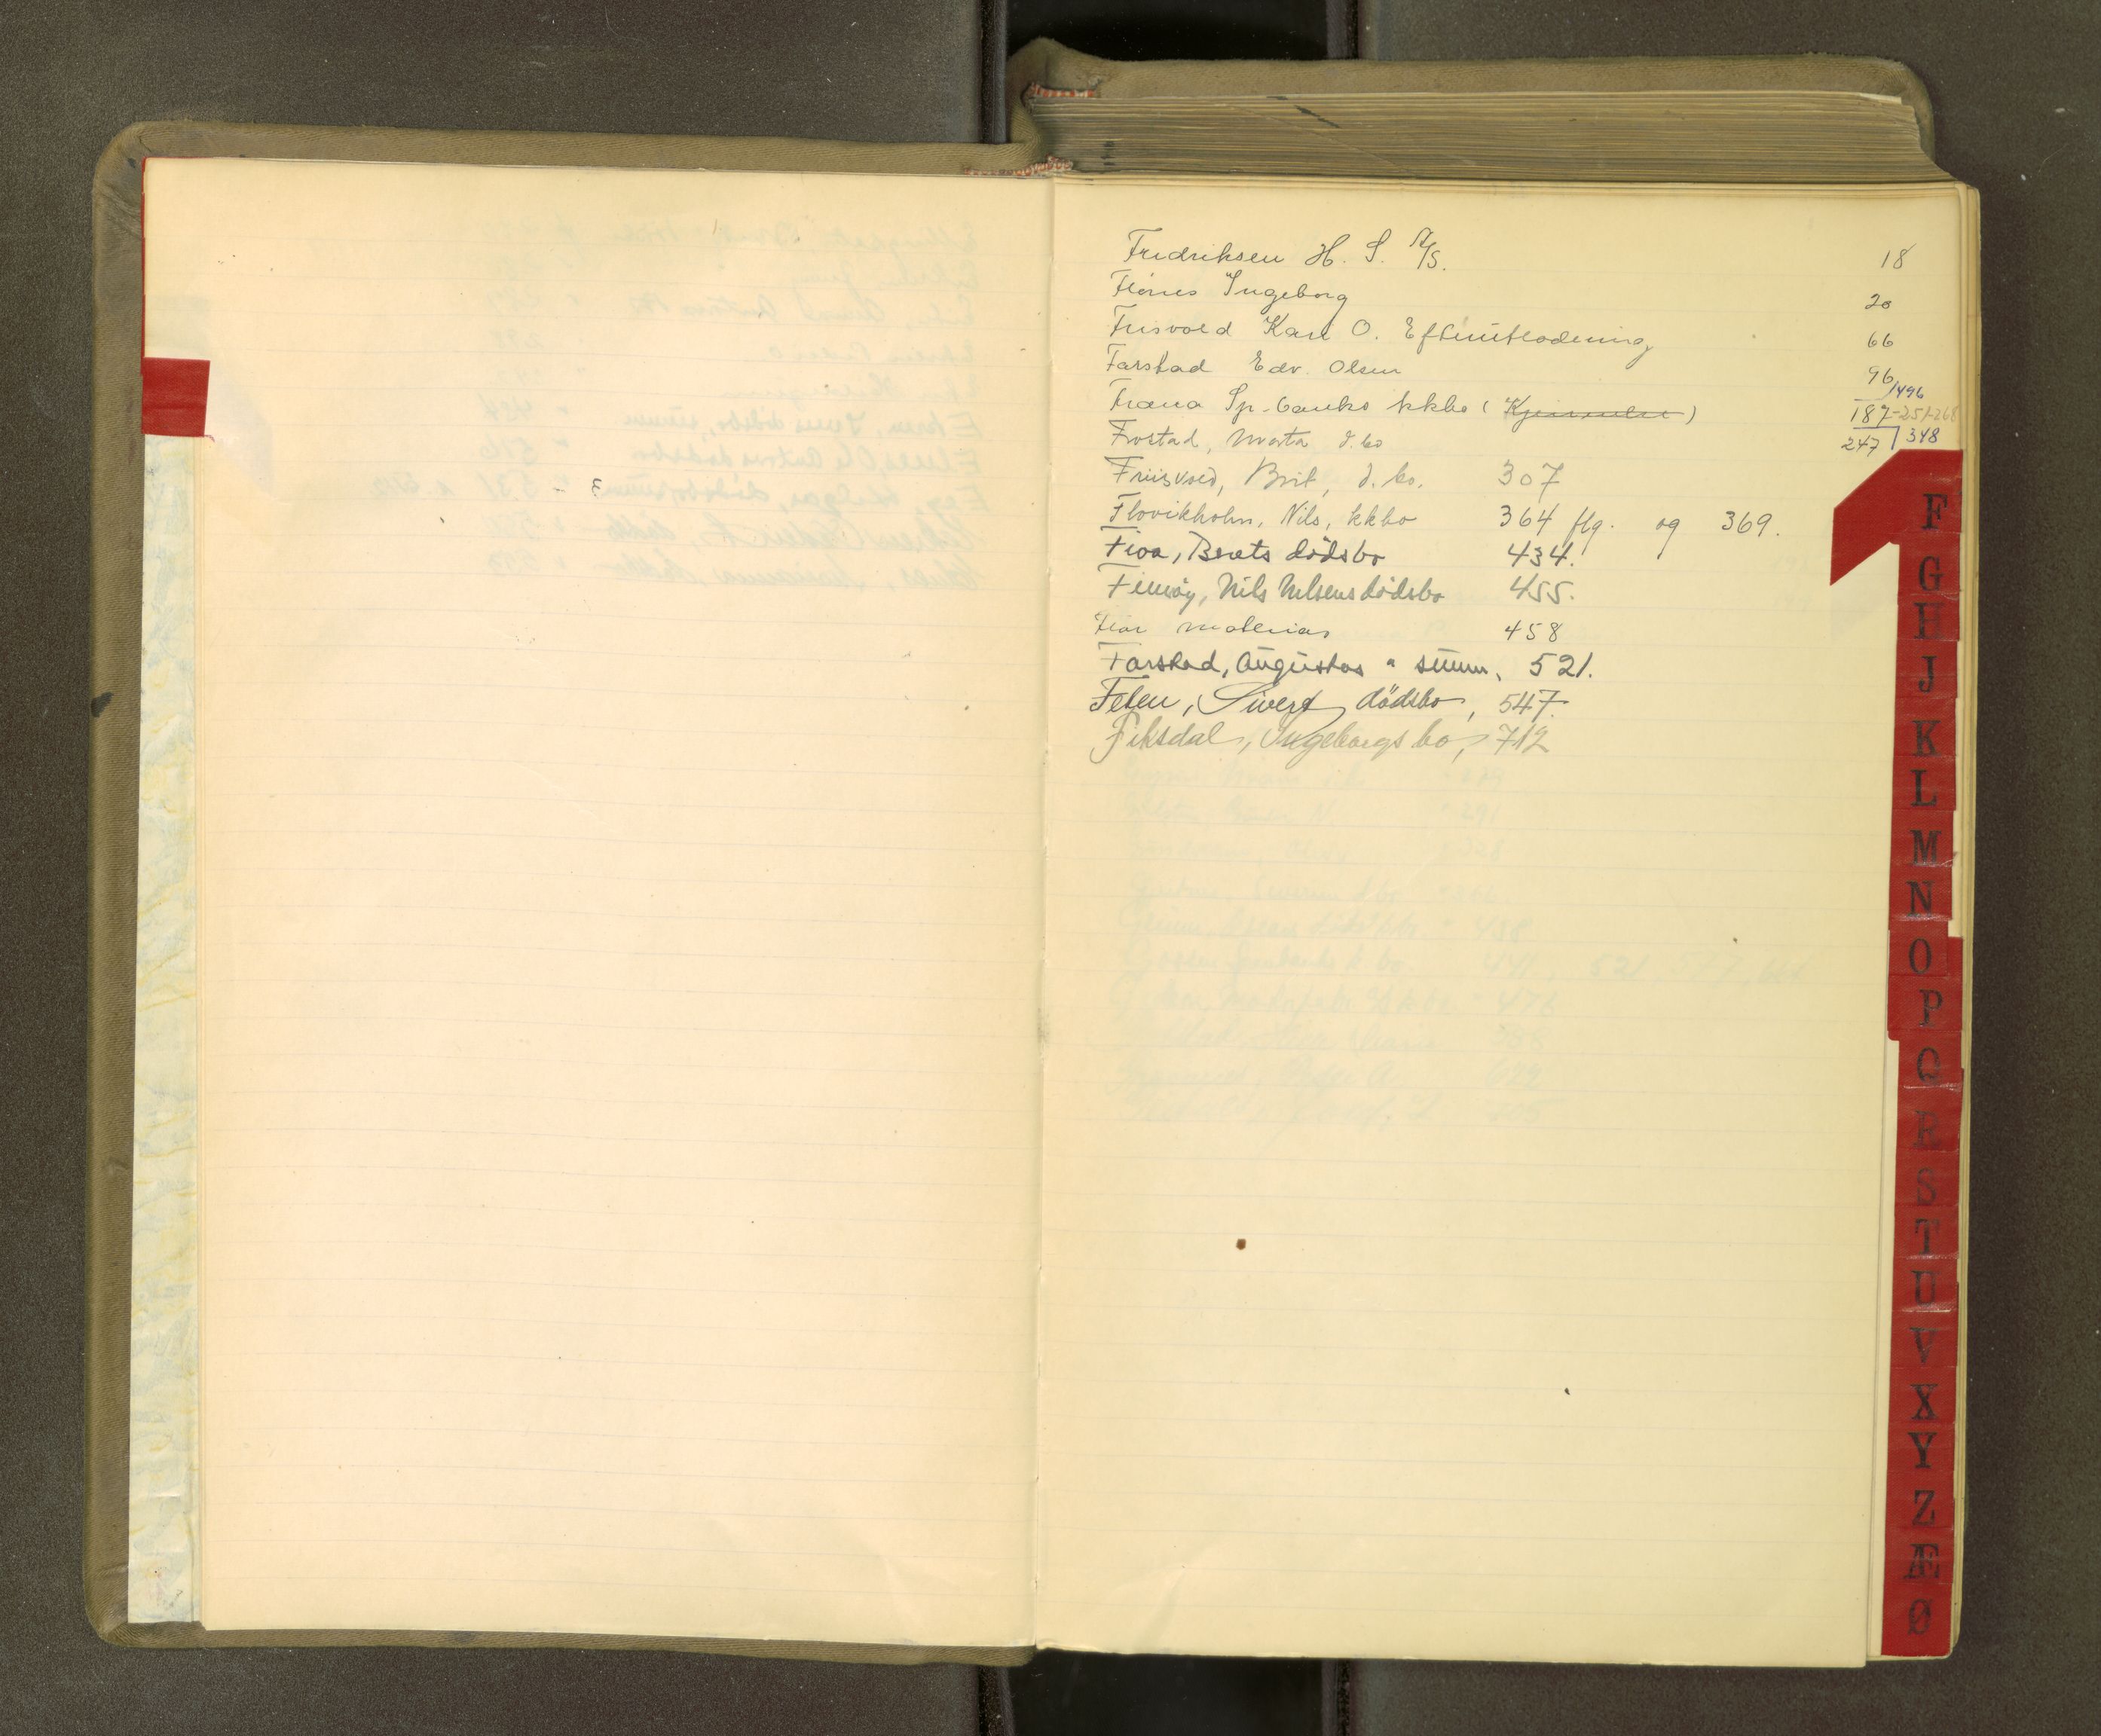 Fredriksen H. S. A/S. 18
Ingeborg 20
Frisvold Karl O. 66
Farstad Edv. Olsen 96
Fræna Sp.banks kkbo ( ) 187-251-268 /496
Frostad, Marta d.bo 247 / 348
Friisvold, Brit, d.bo. 307
Flovikholm, Nils, kkbo 364 flg. og 369.
Fioa, Berets dödsbo 434.
Nils Nilsens dödsbo 455.
458
Farstad, Augustas " summ. 521.
Feten, Sivert, dödsbo, 547.
Fiksdal, Ingeborgs bo, 712
F
G
H
J
K
L
M
N
O
P
Q
R
S
T
U
V
X
Y
Z
Æ
Ø